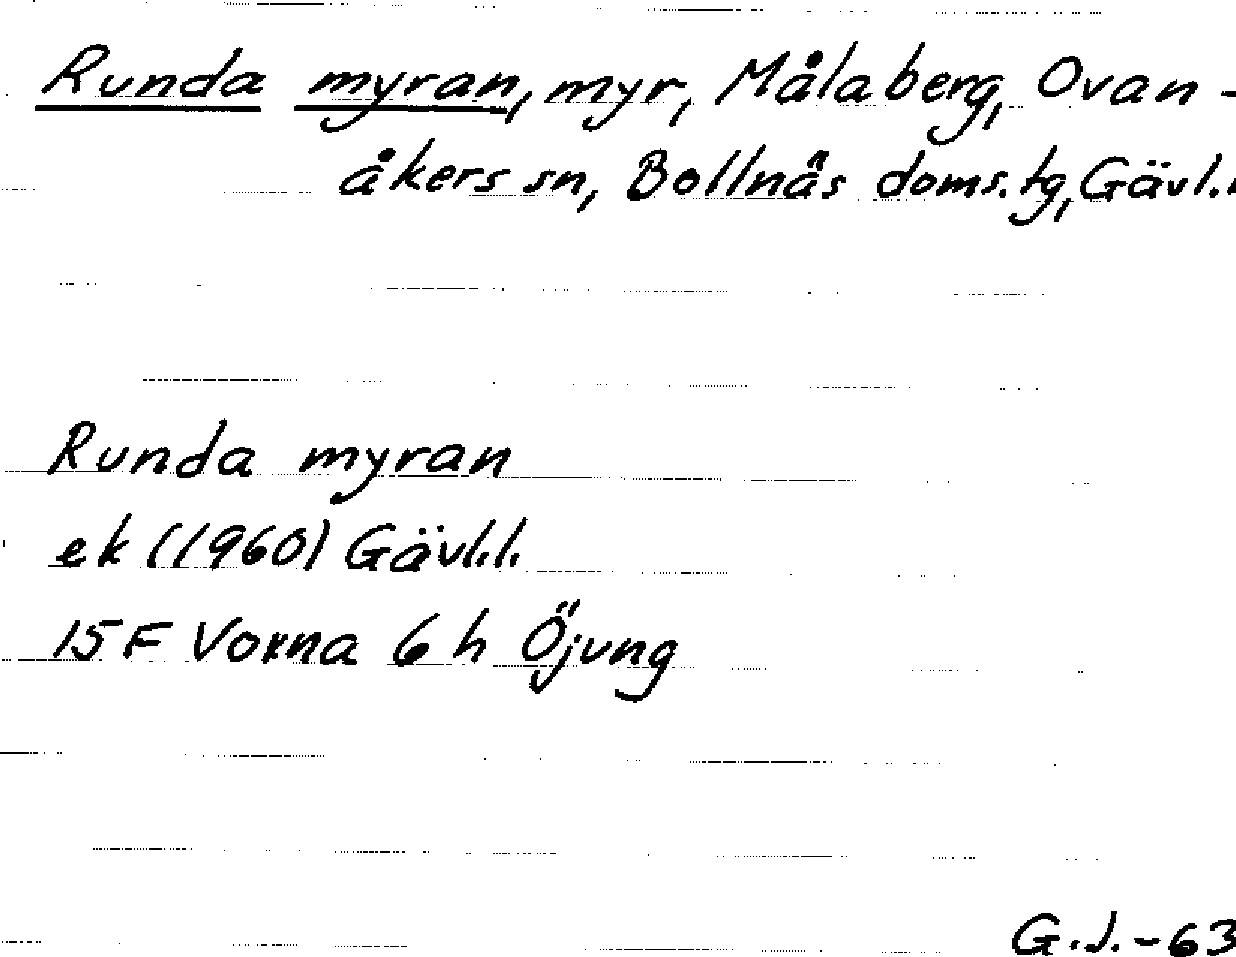 Runda myran, myr, Målaberg, Ovan-
åkers sn, Bollnäs doms.tg, Gävl.l
Runda myran
ek (1960) Gävl.l.
15 F Voxna 6 h Öjung
G.J.-63